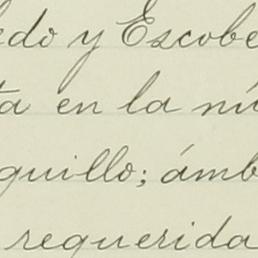 edo y Escobe
ta en la nú
guillo; ámb
requerida